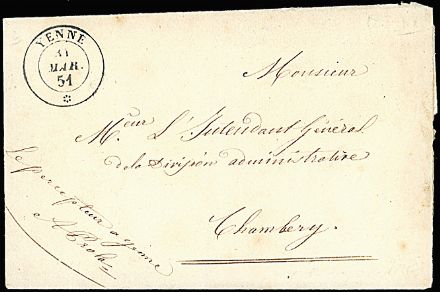 YENNE
31
MAR.
51
Monsieur
M.eur L'Intendant Général
de la Division administrative
Chambery.
Le percepteur a yenne